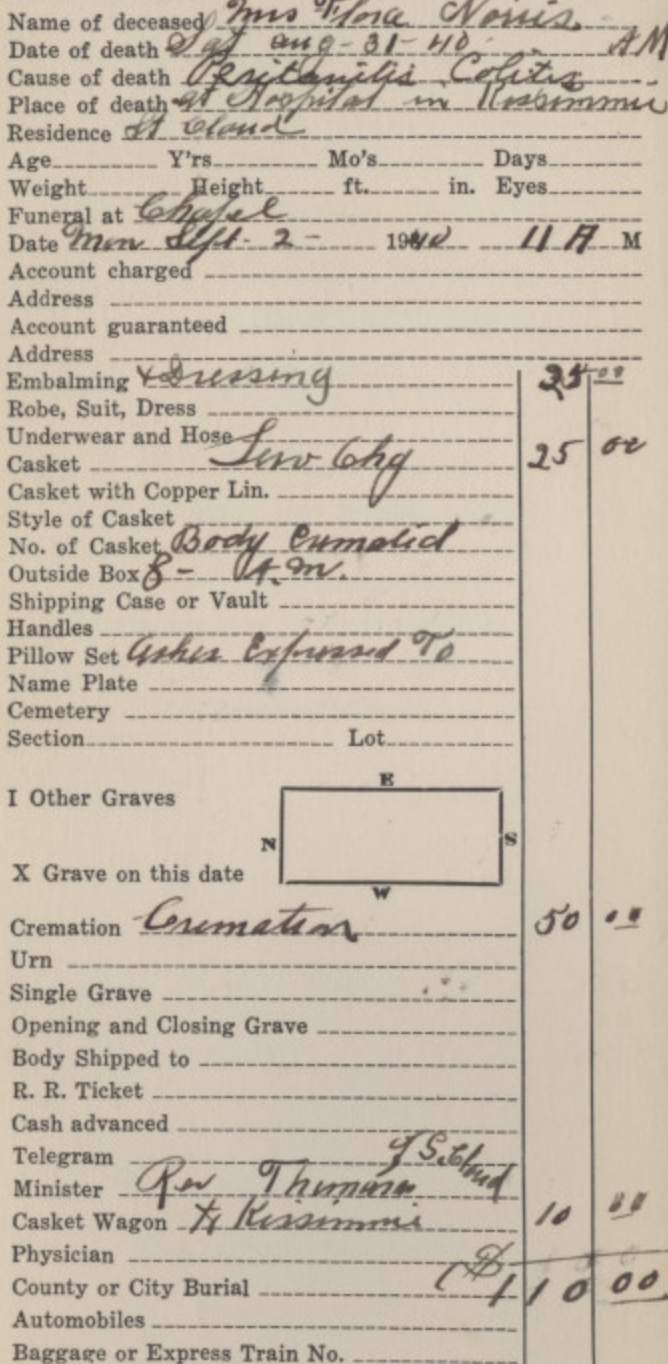 Name of deceased Mrs Flora Norris
Date of death Sat aug-31-40 AM
Cause of death Peritanitis Colitis
Place of death at Hospital in Kissimmie
Residence St Cloud
Age Y'rs Mo's Days
Weight Height ft. in. Eyes
Funeral at Chapel
Date Mon Sept-2- 1940 11 A M
Account charged
Address
Account guaranteed
Address
Embalming & Dressing 25 00
Robe, Suit, Dress
Underwear and Hose
Casket Serv Chg 25 00
Casket with Copper Lin.
Style of Casket
No. of Casket Body Cremated
Outside Box 8- A.M.
Shipping Case or Vault
Handles
Pillow Set Ashes Expressed To
Name Plate
Cemetery
Section Lot
E
I Other Graves
N S
X Grave on this date
W
Cremation Cremation 50 00
Urn
Single Grave
Opening and Closing Grave
Body Shipped to
R. R. Ticket
Cash advanced
Telegram of St Cloud
Minister Rev
Casket Wagon to Kissimmie 10 00
Physician
County or City Burial 110 00
Automobiles
Baggage or Express Train No.